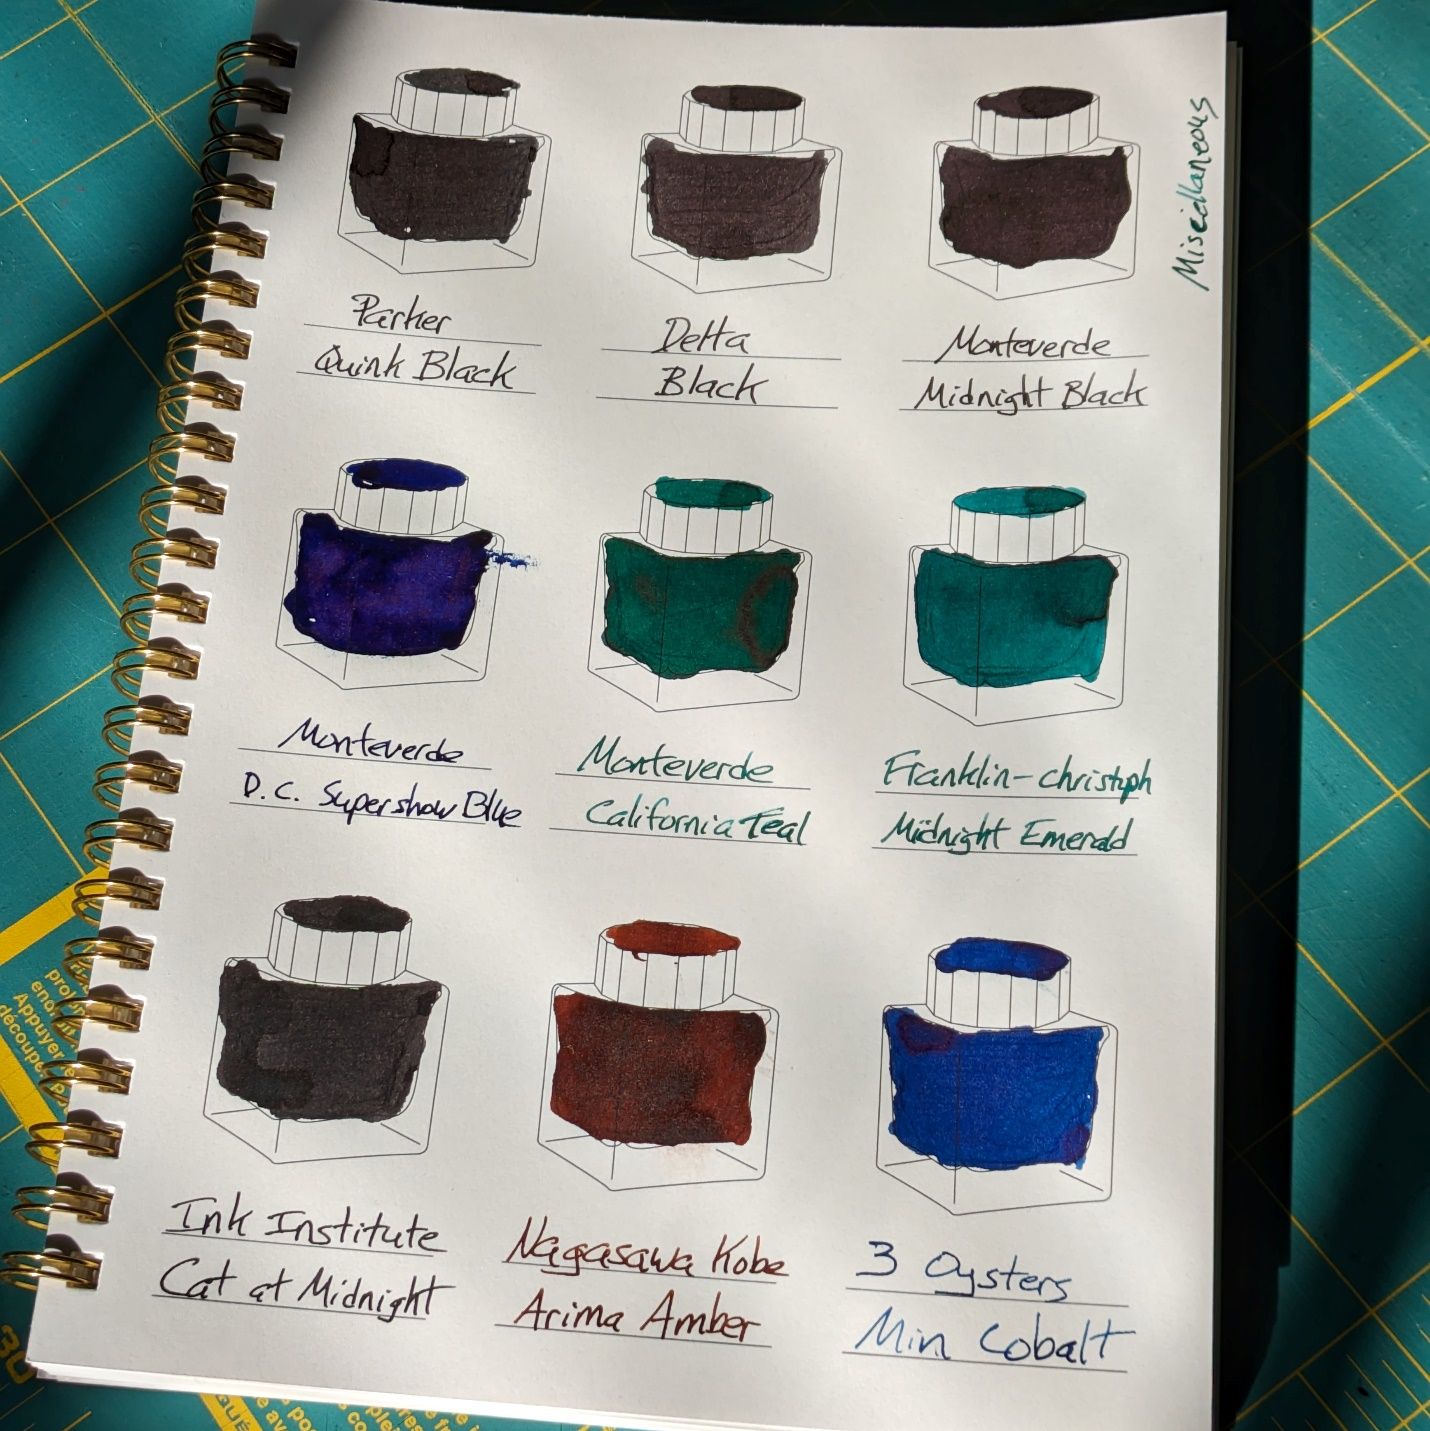 Miscellaneous
Parker
Quink Black
Delta
Black
Monteverde
Midnight Black
Monteverde
D.C. Supershow Blue
Monteverde
California Teal
Franklin-christoph
Midnight Emerald
Ink Institute
Cat at Midnight
Nagasawa Kobe
Arima Amber
3 Oysters
Min Cobalt
Appuyer
découpe.